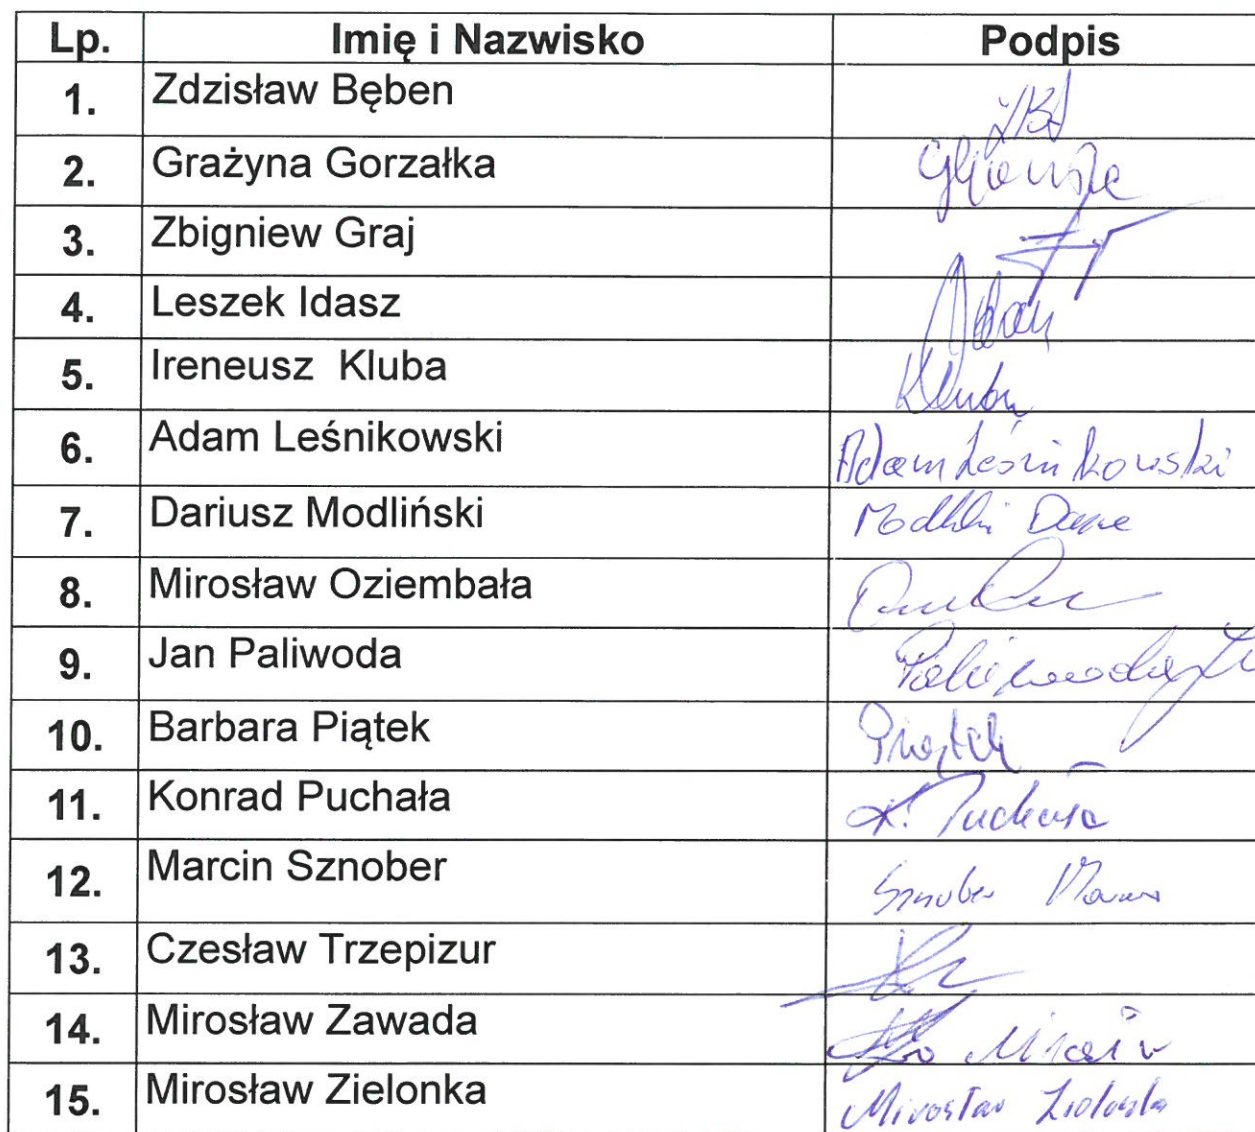 Lp. Imię i Nazwisko Podpis
1. Zdzisław Bęben
2. Grażyna Gorzałka
3. Zbigniew Graj
4. Leszek Idasz
5. Ireneusz Kluba Kluba
6. Adam Leśnikowski Adam Leśnikowski
7. Dariusz Modliński
8. Mirosław Oziembała
9. Jan Paliwoda Paliwoda
10. Barbara Piątek Piątek
11. Konrad Puchała K. Puchała
12. Marcin Sznober Sznober
13. Czesław Trzepizur
14. Mirosław Zawada
15. Mirosław Zielonka Mirosław Zielonka